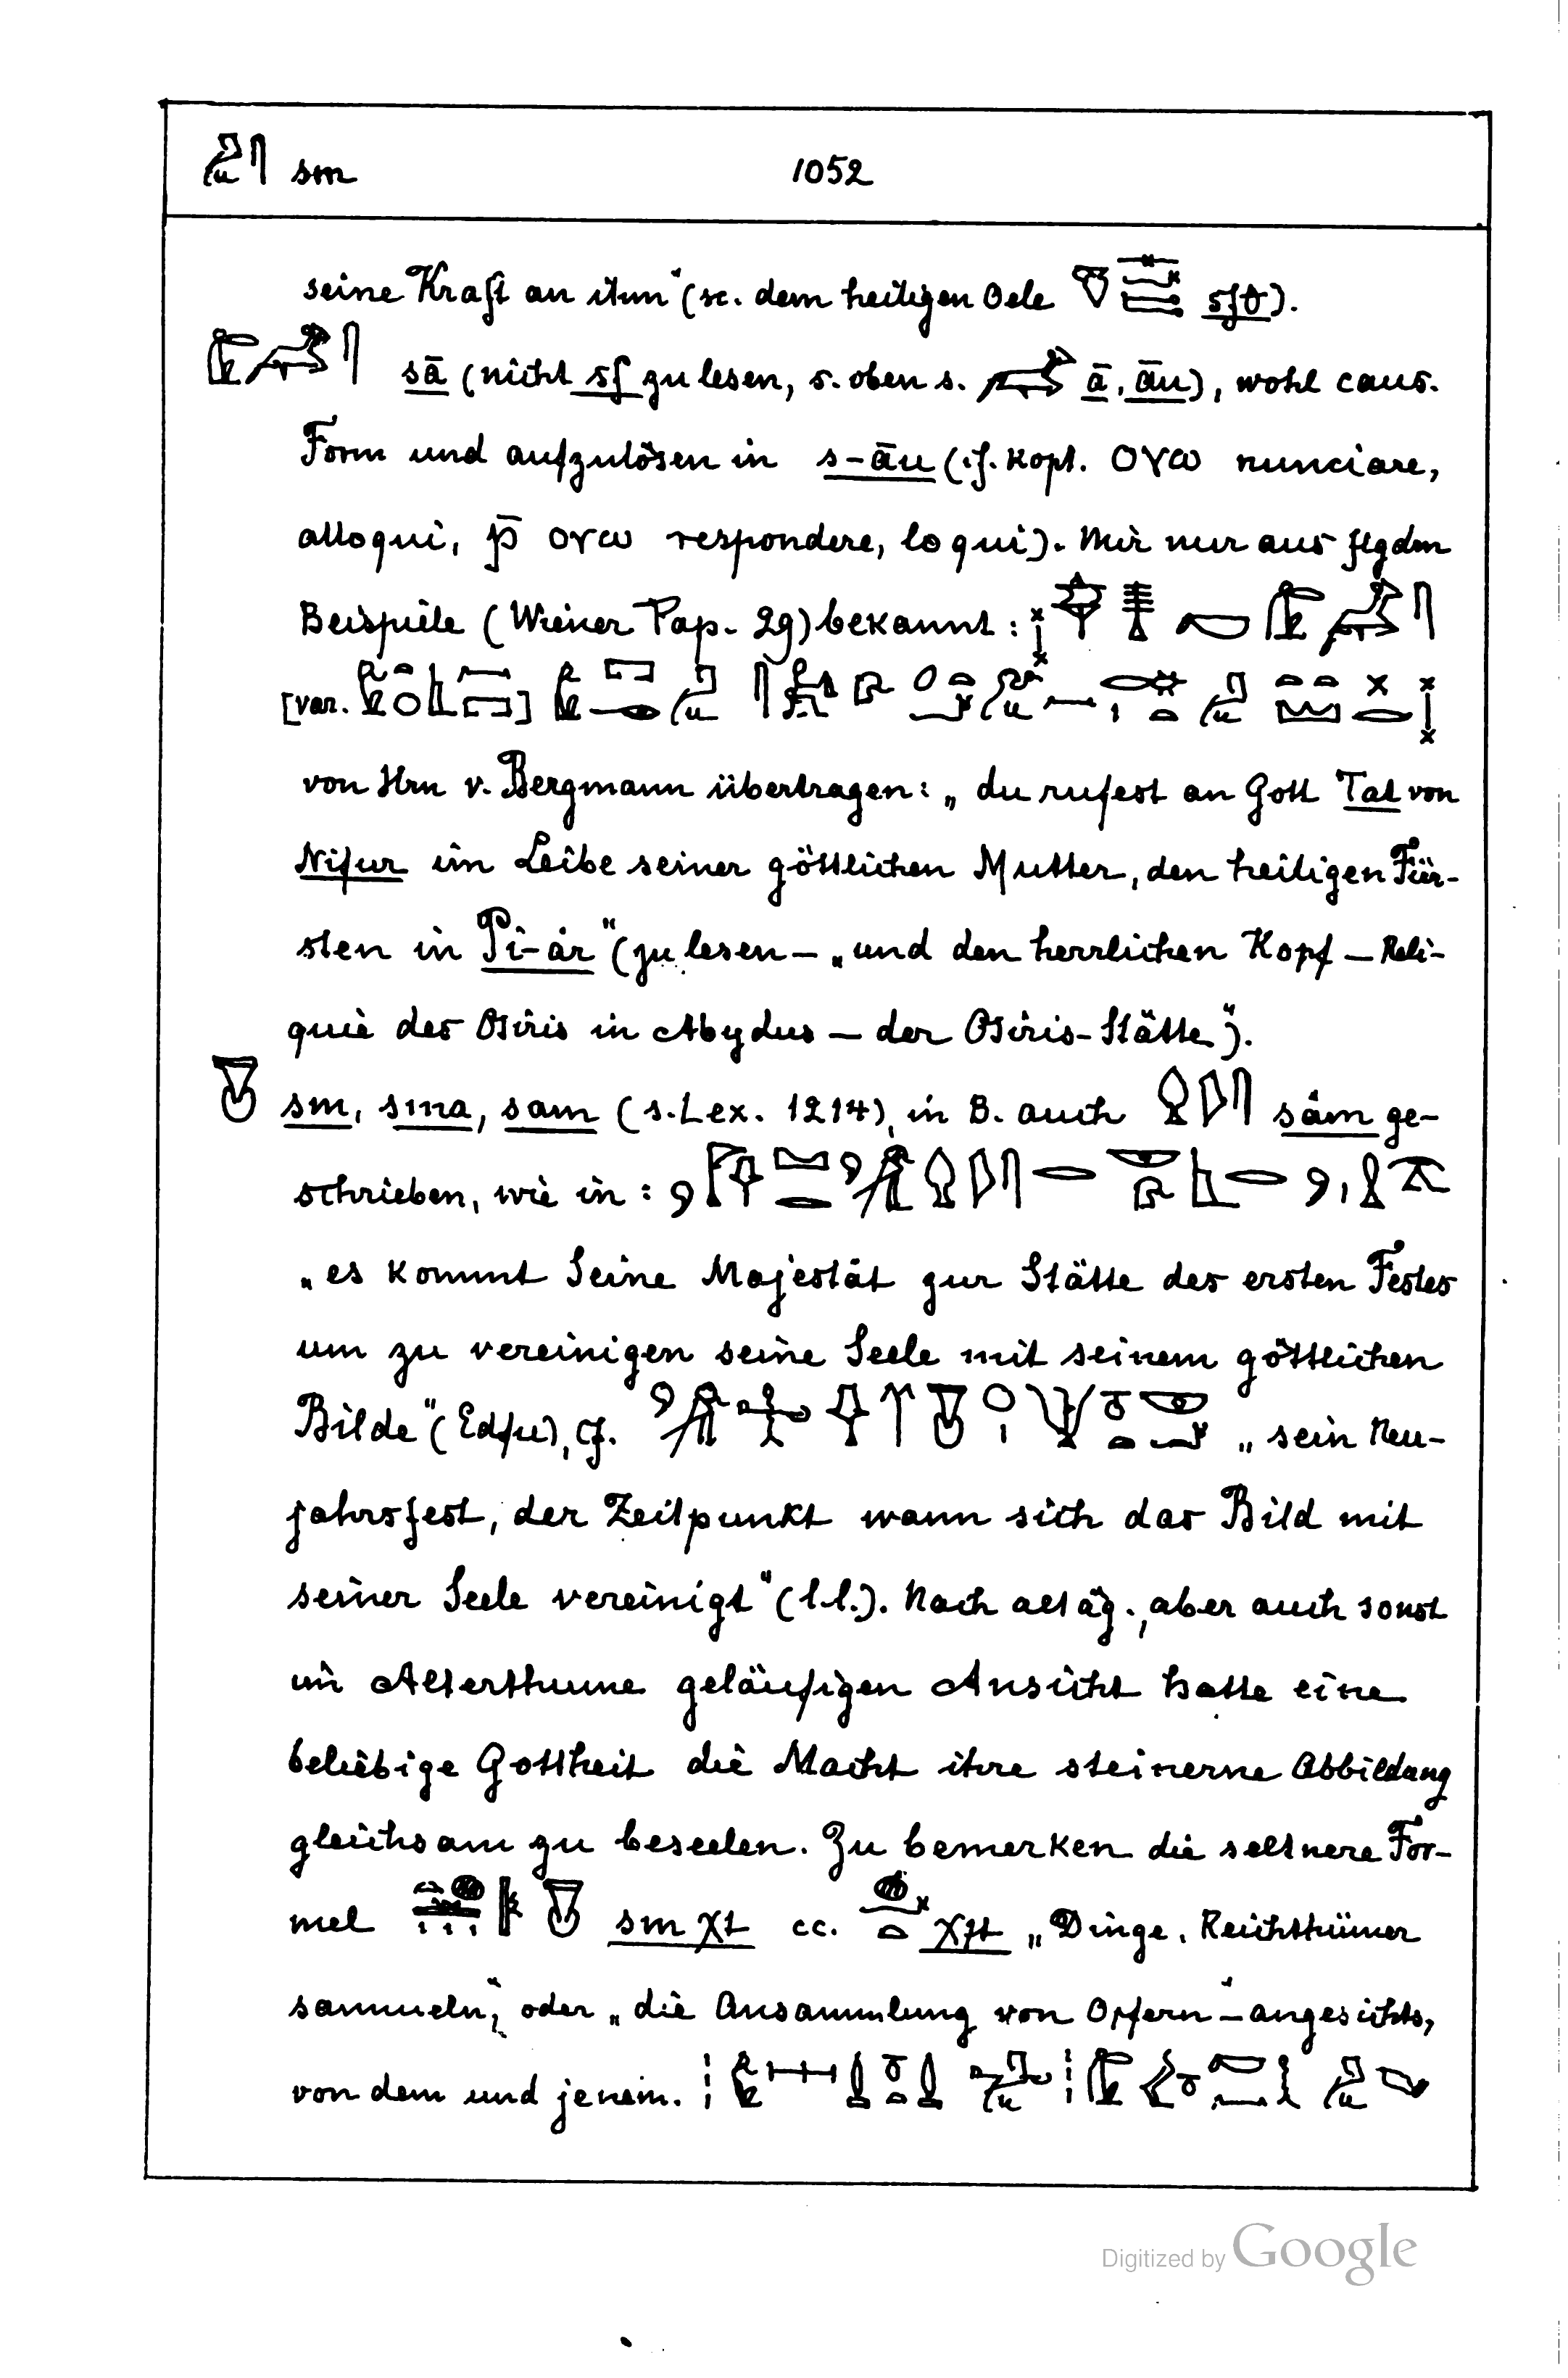 sm 1052
seine Kraft an ihm“ (sc. dem heiligen Oele sft).
sā (nicht sf zu lesen, s. oben s. ā, āu), wohl caus.
Form und aufzulösen in s-āu (cf. kopt. ⲟⲩⲱ nunciare,
alloqui, ⲣ̄ ⲟⲩⲱ respondere, loqui). Mir nur aus flgdm
Beispiele (Wiener Pap. 29) bekannt:
[var. ]
von Hrn v. Bergmann übertragen: „du rufest an Gott Tat von
Nifur im Leibe seiner göttlichen Mutter, den heiligen Für-
sten in Pi-år“ (zu lesen – „und den herrlichen Kopf – Reli-
quie des Osiris in Abydus – der Osiris-Stätte“).
sm, sma, sam (s. Lex. 1214), in B. auch såm ge-
schrieben, wie in:
„es kommt Seine Majestät zur Stätte des ersten Festes
um zu vereinigen seine Seele mit seinem göttlichen
Bilde“ (Edfu), cf. „sein Neu-
jahrsfest, der Zeitpunkt wann sich das Bild mit
seiner Seele vereinigt“ (l.l.). Nach altäg., aber auch sonst
im Alterthume geläufigen Ansicht hatte eine
beliebige Gottheit die Macht ihre steinerne Abbildung
gleichsam zu beseelen. Zu bemerken die seltnere For-
mel sm χt cc. χft „Dinge, Reichthümer
sammeln“, oder „die Ansammlung von Opfern“ – angesichts,
von dem und jenem.
Digitized by Google